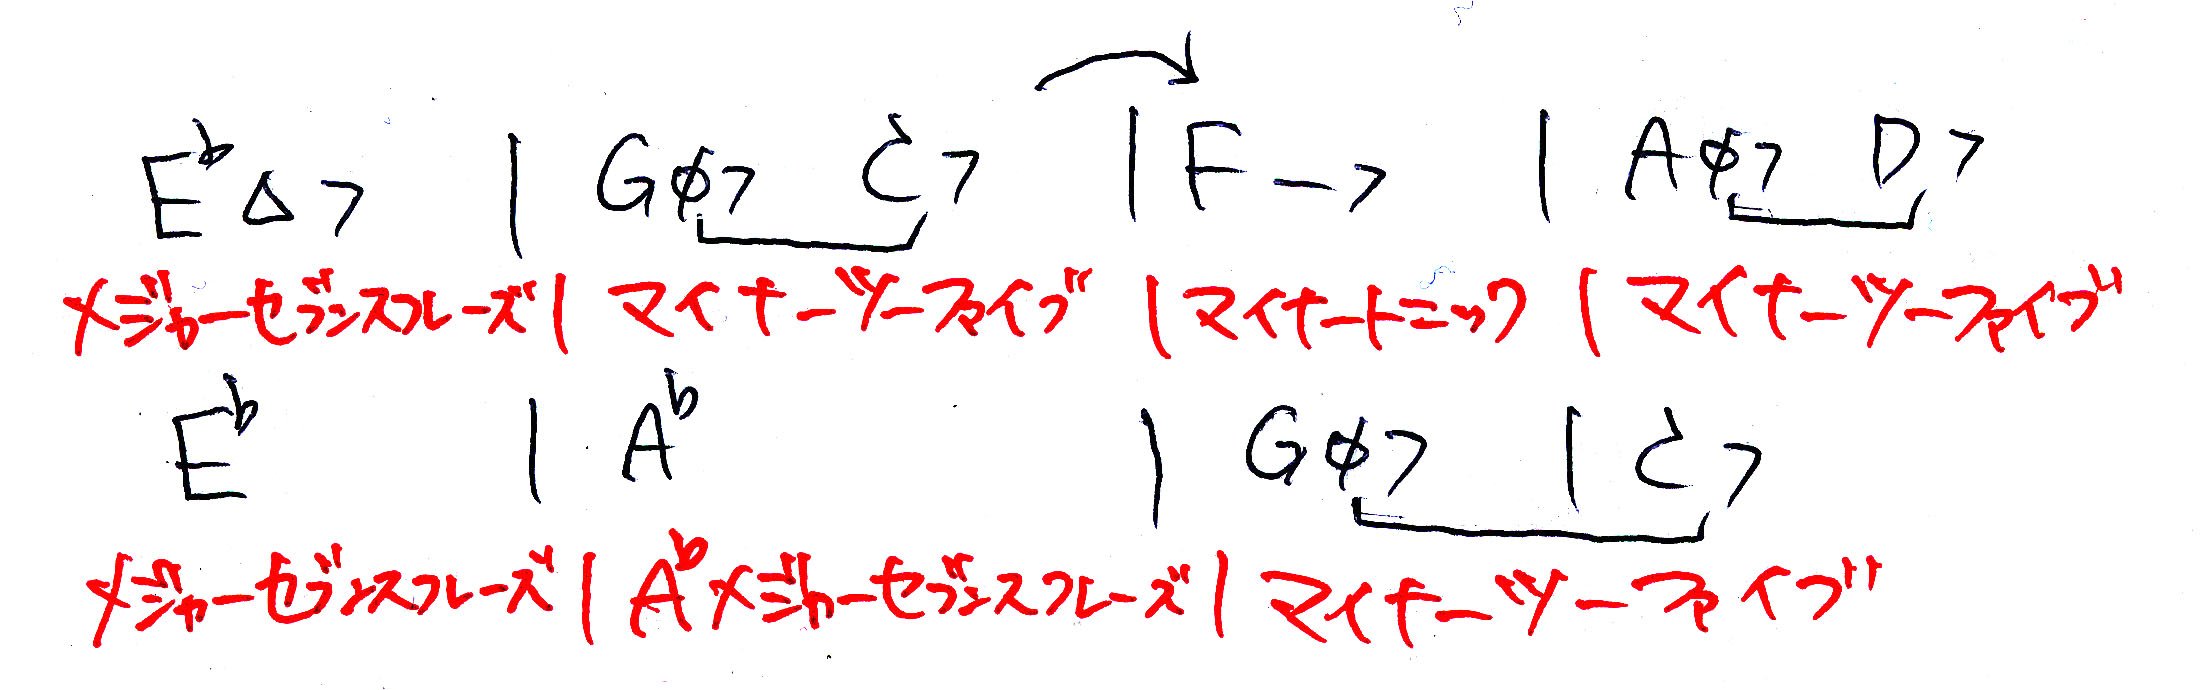 E♭△7 | Gø7 C7 | F-7 | Aø7 D7
メジャーセブンスフレーズ | マイナーツーファイブ | マイナートニック | マイナーツーファイブ
E♭ | A♭ | Gø7 | C7
メジャーセブンスフレーズ | A♭メジャーセブンスフレーズ | マイナーツーファイブ